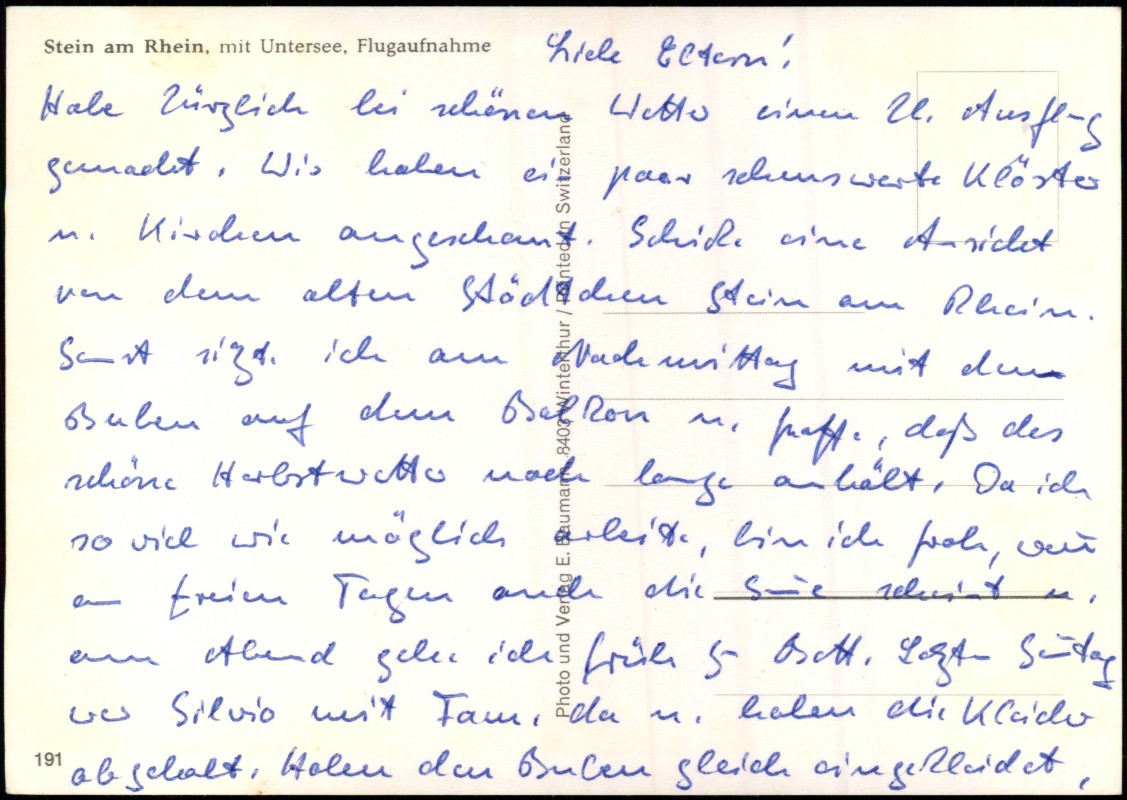 Stein am Rhein, mit Untersee, Flugaufnahme
Liebe Eltern!
Habe kürzlich bei schönem Wetter einen kl. Ausflug
gemacht. Wir haben ein paar sehenswerte Klöster
u. Kirchen angeschaut. Schicke eine Ansicht
von dem alten Städtchen Stein am Rhein.
Sonst sitze ich am Nachmittag mit dem
Buben auf dem Balkon u. hoffe, daß das
schöne Herbstwetter noch lange anhält. Da ich
so viel wie möglich arbeite, bin ich froh, wenn
an freien Tagen auch die Sonne scheint u.
am Abend gehe ich früh zu Bett. Letzten Sonntag
war Silvio mit Fam. da u. haben die Kleider
abgeholt. Haben den Buben gleich eingekleidet,
191
Photo und Verlag E. Baumann, 8403 Winterthur / Printed in Switzerland